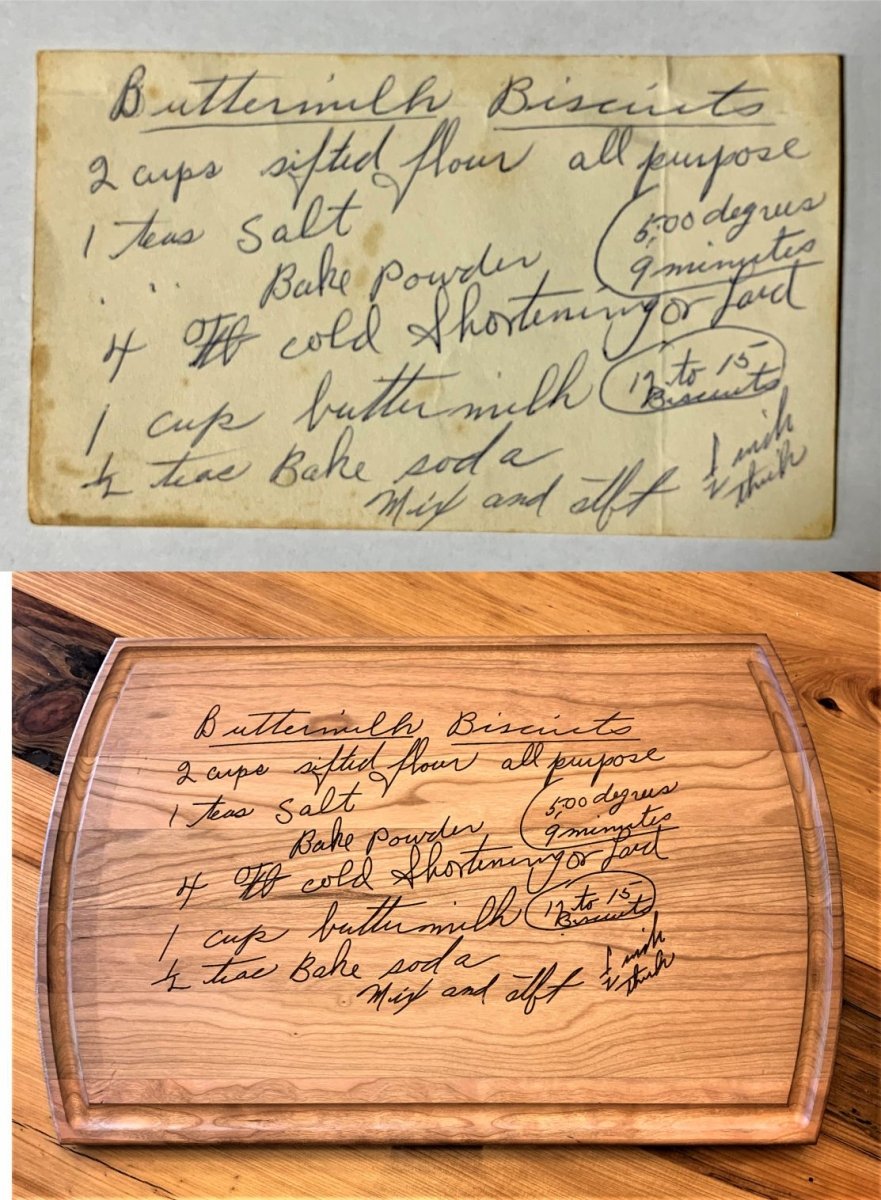 Buttermilk Biscuits
2 cups sifted flour all purpose
1 teas Salt
5,00 degrees
9 minutes
" " Bake Powder
4 cold Shortening or Lard
1 cup buttermilk
12 to 15
Biscuits
½ teas Bake soda
Mix and
½ inch
thick
Buttermilk Biscuits
2 cups sifted flour all purpose
1 teas Salt
5,00 degrees
9 minutes
Bake Powder
4 cold Shortening or Lard
1 cup buttermilk
12 to 15
Biscuits
½ teas Bake soda
Mix and
½ inch
thick